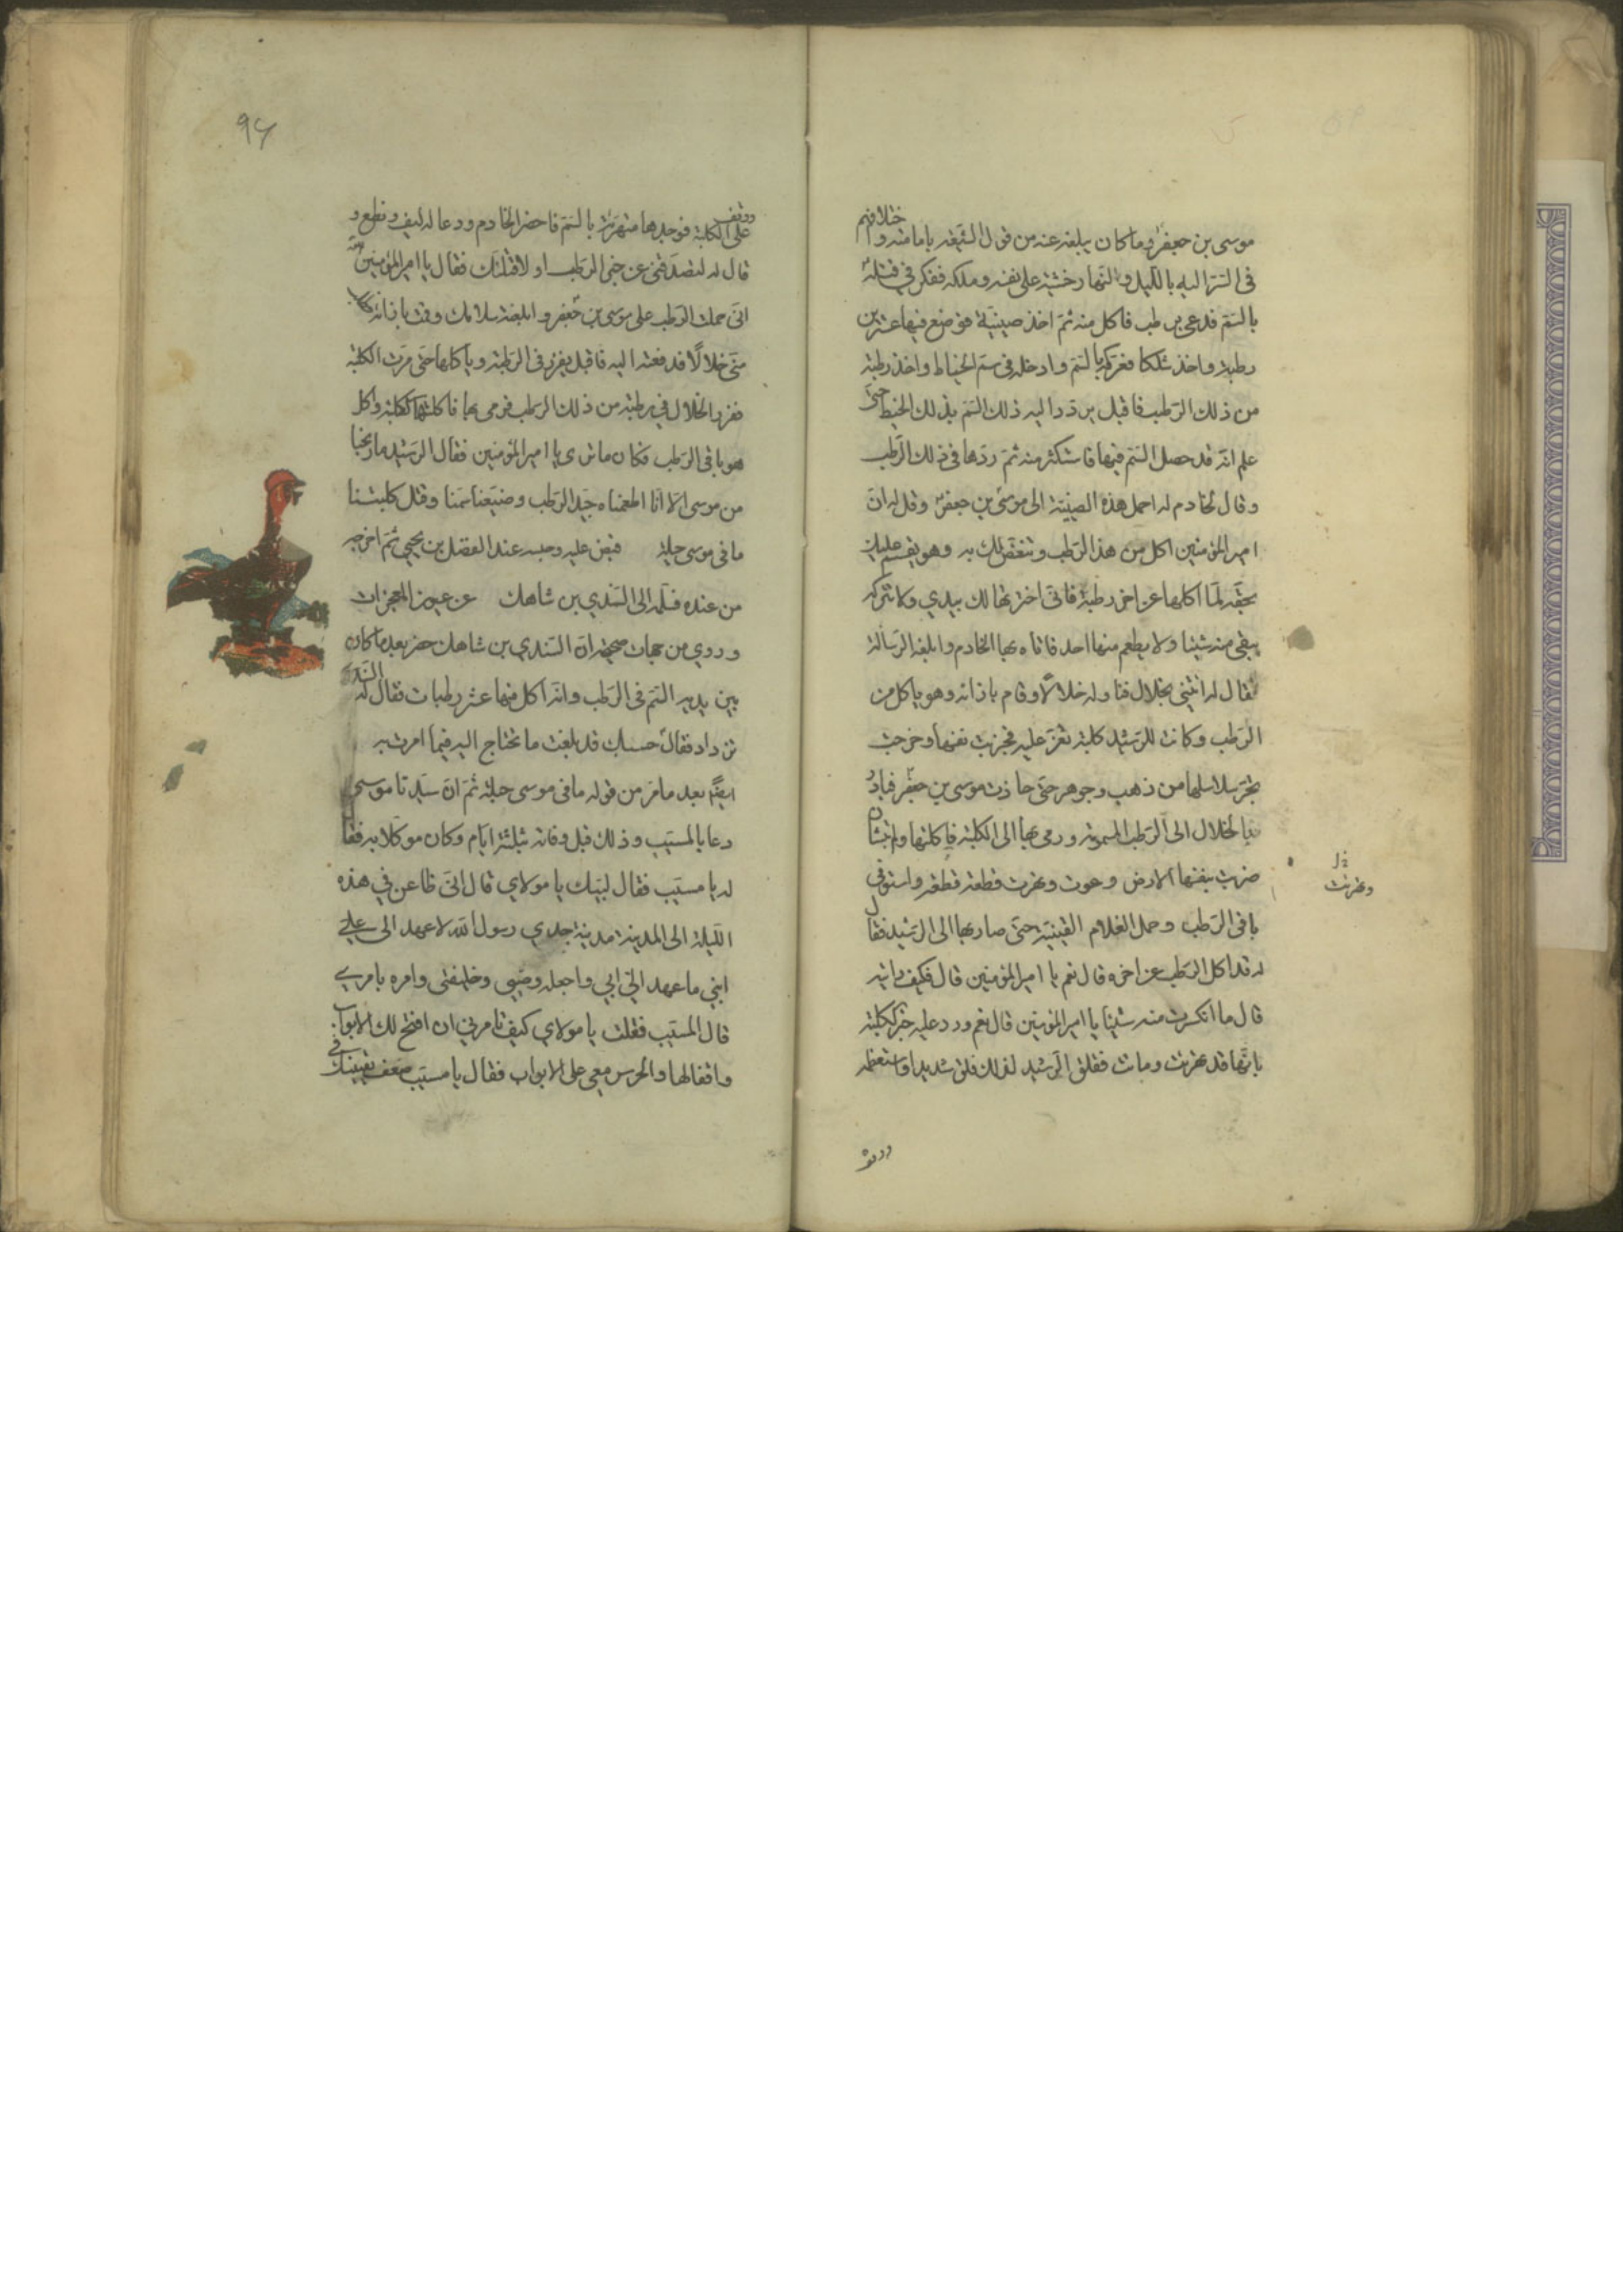 موسى بن جعفر وما كان يبلغه عنه من قول الشيعة بامامته واختلافهم
فى السّر اليه بالليل والنهار خشية على نفسه وملكه ففكر في قتله
بالسّم فدعى برطب فاكل منه ثمّ اخذ صينية فوضع فيها عشرين
رطبة واخذ سلكا فعركه بالسّم وادخله فى سمّ الخياط واخذ رطبة
من ذلك الرّطب فاقبل يردد اليه ذلك السّم بذلك الخيط حتى
علم انّه قد حصل السّم فيها فاستكثر منه ثمّ ردّها فى ذلك الرّطب
وقال لخادم له احمل هذه الصينيّة الى موسى بن جعفر وقل له انّ
امير المؤمنين اكل من هذا الرّطب وتنغّص لك به وهو يقسم عليك
بحقّه لمّا اكلتها عن اخر رطبة فانّى اخترتها لك بيدي ولا تتركه
يبقى منه شيئا ولا يطعم منها احد فاتاه بها الخادم وابلغه الرّسالة
فقال له ائتنى بخلال فناوله خلالًا وقام بازائه وهو ياكل من
الرّطب وكانت للرّشيد كلبة تعزّ عليه فجذبت نفسها وخرجت
تجرّ سلاسلها من ذهب وجوهر حتى حاذت موسى بن جعفر فبادر
بالخلال الى الرّطب المسمومة ورمى بها الى الكلبة فاكلتها ولم تلبث ان
ضربت بنفسها الارض وعوت وتهرّت قطعة قطعة واستوفى
خ ل
وتهرّت
باقى الرّطب وحمل الغلام الصينيّة حتى صار بها الى الرّشيد فقال
له قد اكل الرّطب عن اخره قال نعم يا امير المؤمنين قال فكيف رايته
قال ما انكرت منه شيئا يا امير المؤمنين قال نعم وورد عليه خبر الكلبة
بانّها قد تهرّت وماتت فقلق الرّشيد لذلك قلقا شديدا واستعظمه
ووقف
96
ووقف على الكلبة فوجدها متهرّئة بالسّم فاحضر الخادم ودعا له بسيف ونطع و
قال له لتصدقنى عن خبر الرّطب او لاقتلنّك فقال يا امير المؤمنين
انّى حملت الرّطب على موسى بن جعفر وابلغته سلامك وقمت بازائه
منّى خلالًا فدفعته اليه فاقبل يغرز فى الرّطبة وياكلها حتى مرّت الكلبة
فغرز الخلال في رطبة من ذلك الرّطب فرمى بها فاكلتها الكلبة واكل
هو باقى الرّطب فكان ما ترى يا امير المؤمنين فقال الرّشيد ما ربحنا
من موسى الّا انّا اطعمناه جيّد الرّطب وضيّعنا سمّنا وقتل كلبتنا
ما فى موسى حيلة قبض عليه وحبسه عند الفضل بن يحيى ثمّ اخرجه
من عنده فسلّمه الى السّندي بن شاهك عن عيون المعجزات
وروي من جهات صحيحة انّ السّندي بن شاهك حضر بعد ما كان
بين يديه السّم فى الرّطب وانّه اكل منها عشر رطبات فقال له السّندى
تزداد فقال حسبك قد بلغت ما تحتاج اليه فيما امرت به
ايضًا بعد ما مرّ من قوله ما فى موسى حيلة ثمّ انّ سيّدنا موسى
دعا بالمسيّب وذلك قبل وفاته بثلثة ايّام وكان موكّلا به فقال
له يا مسيّب فقال لبّيك يا مولاي قال انّى ظاعن في هذه
اللّيلة الى المدينة مدينة جدي رسول الله لاعهد الى علي
ابني ما عهد اليّ ابي واجعله وصيّى وخليفتى وامره بامري
قال المسيّب فقلت يا مولاي كيف تامرني ان افتح لك الابواب
واقفالها والحرس معي على الابواب فقال يا مسيّب ضعف يقينك في